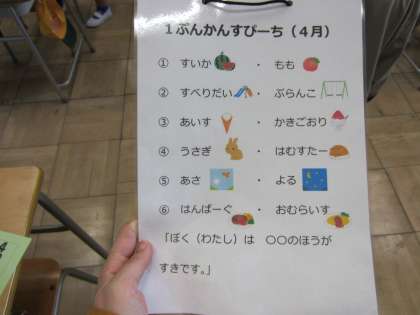 １ぷんかんすぴーち（４月）
① すいか ・ もも
② すべりだい ・ ぶらんこ
③ あいす ・ かきごおり
④ うさぎ ・ はむすたー
⑤ あさ ・ よる
⑥ はんばーぐ ・ おむらいす
「ぼく（わたし）は 〇〇のほうが
すきです。」